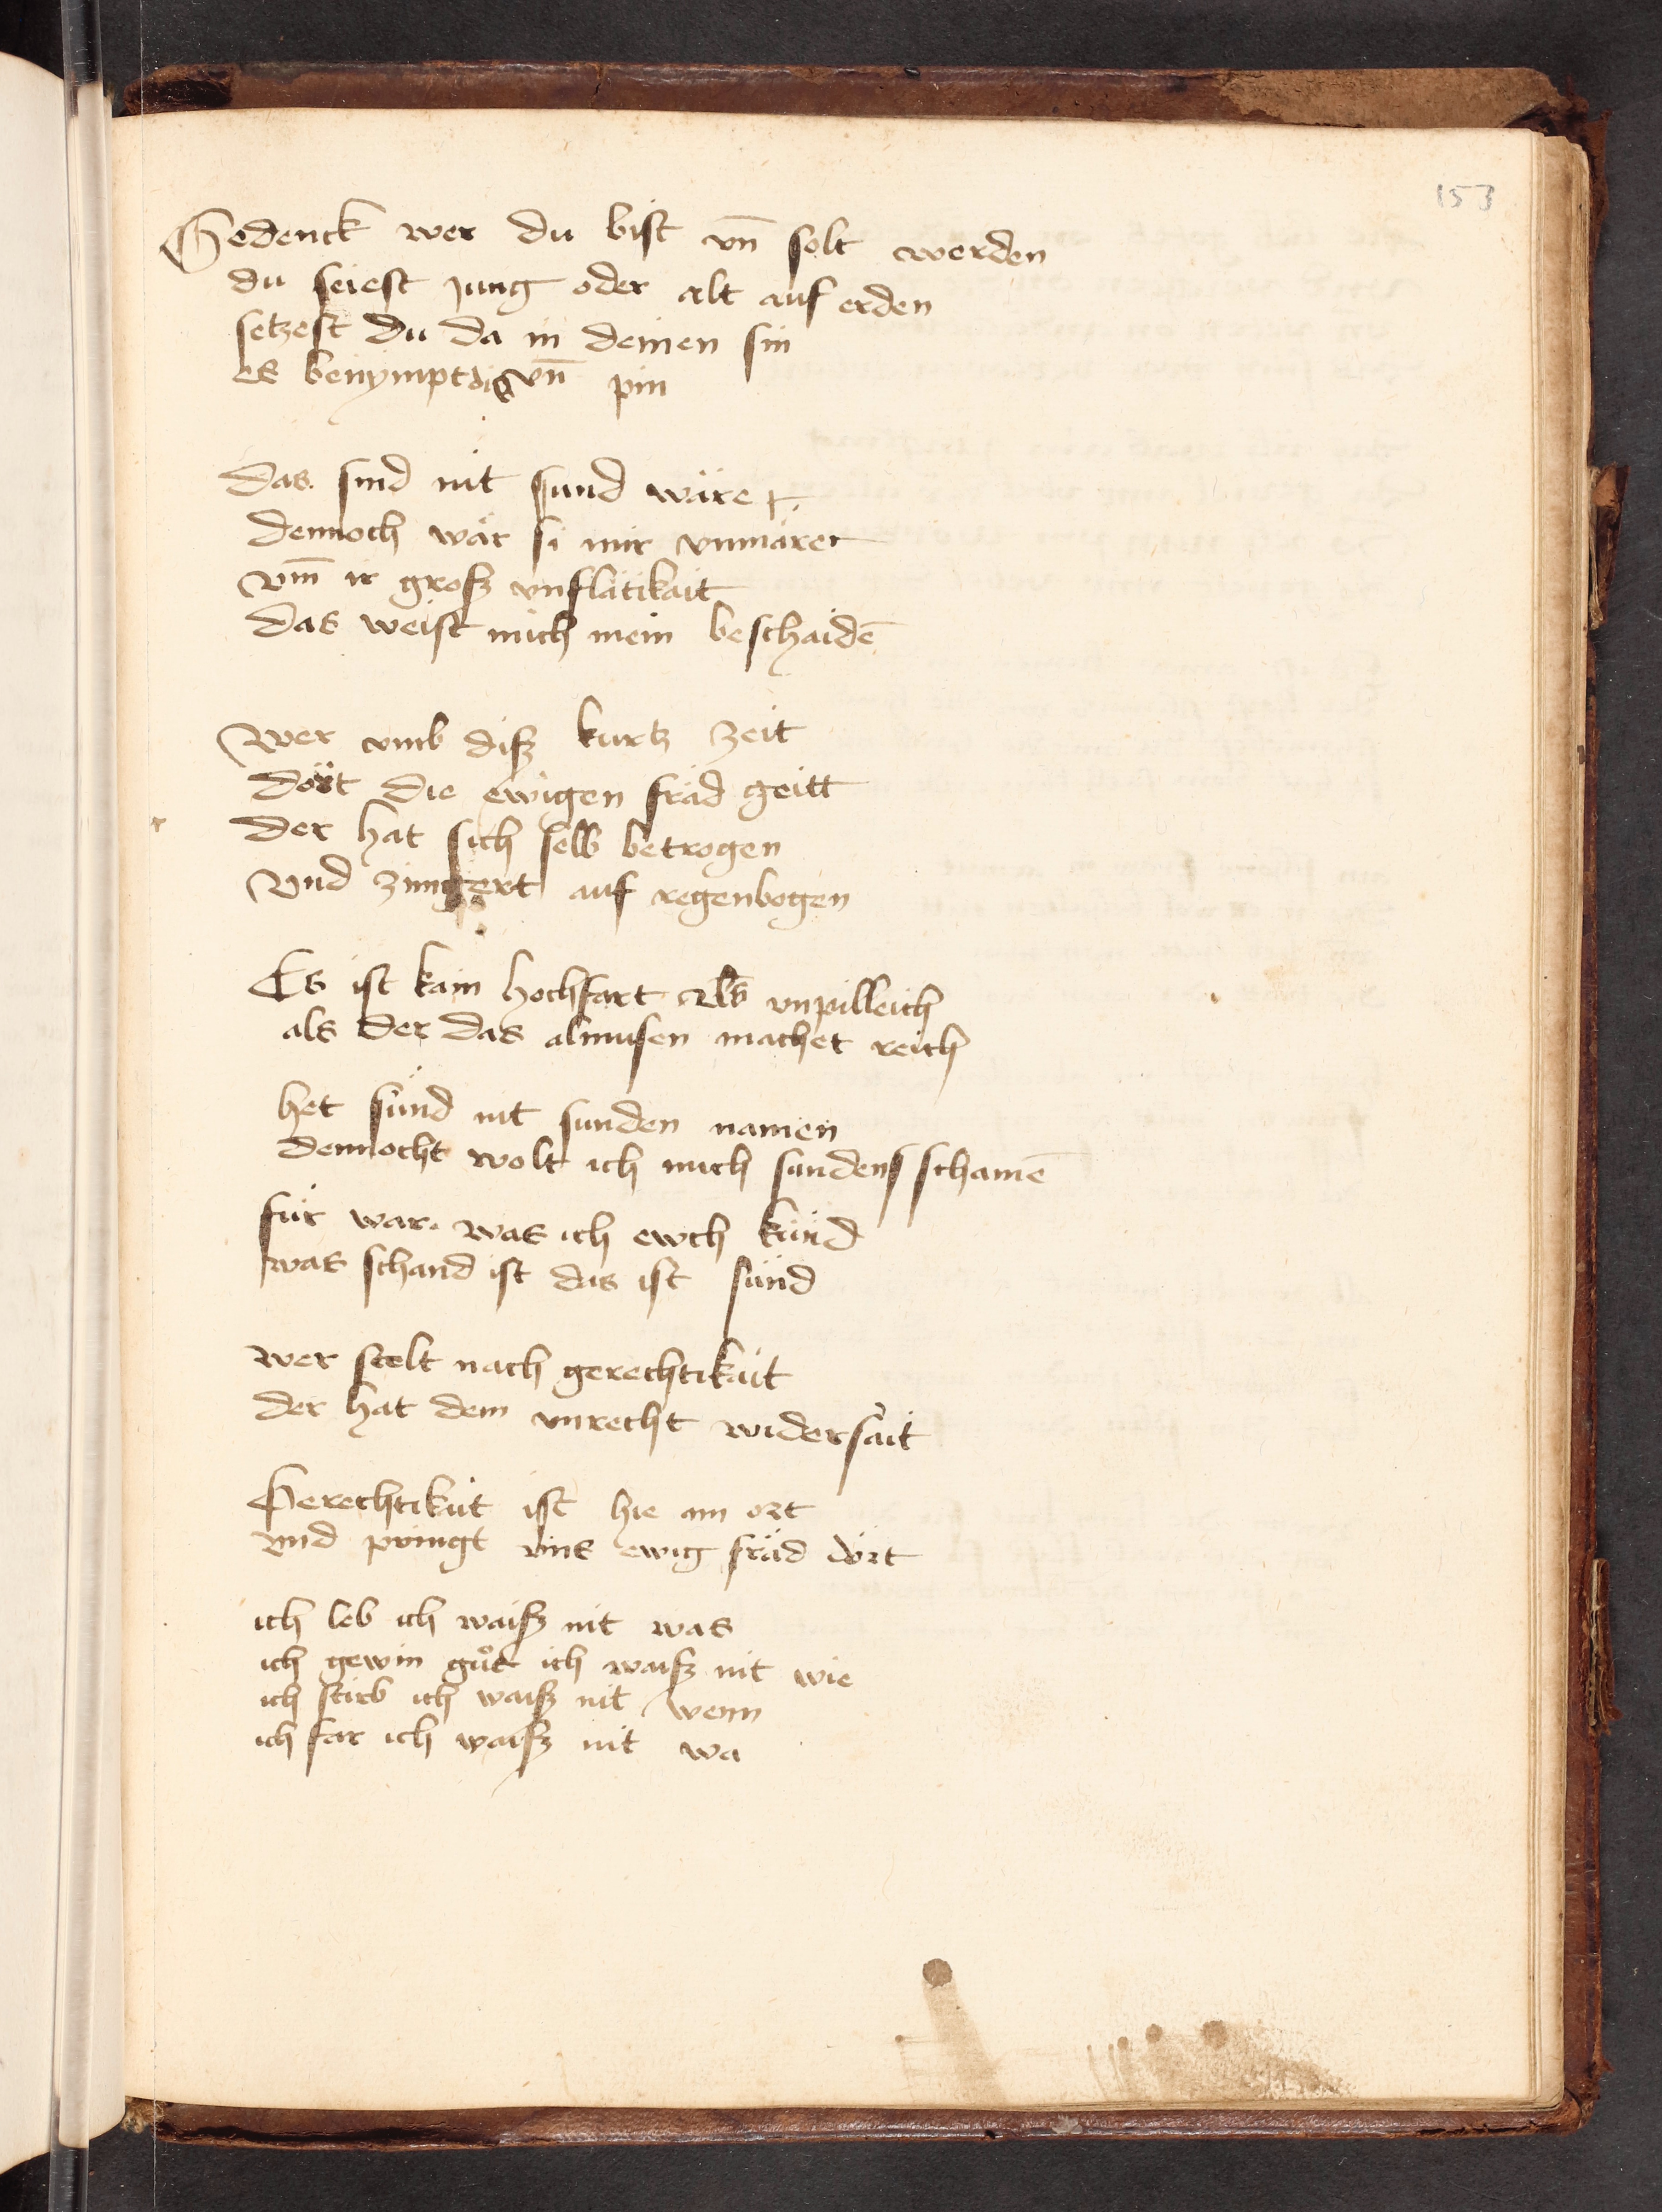 153
Gedenck wer du bist vn̄ solt werden
du seiest jung oder alt auf erden
setzest du da in deinen sin
es benympt dis vn̄ pin
das sind nit sund wäre
dennoch wär si mir vnmärer
vm̄ ir grosz vnflätikait
das weist mich mein beschaidē
Wer vmb disz kurtz zeit
dört die ewigen fräd geitt
der hat sich selb betrogen
Vnd zimert auf regenbogen
Es ist kain hochfart als vnpilleich
als der das almusen machet reich
het sünd nit sunden namen
dennocht wolt ich mich sundens schamē
für war was ich ewch künd
was schand ist das ist sünd
wer stelt nach gerechtikait
der hat dem vnrecht widersait
Gerechtikait ist hie am ort
vnd pringt vns ewig fräd dört
ich leb ich waisz nit was
ich gewin gůt ich waisz nit wie
ich stirb ich waisz nit wenn
ich far ich waisz nit wa